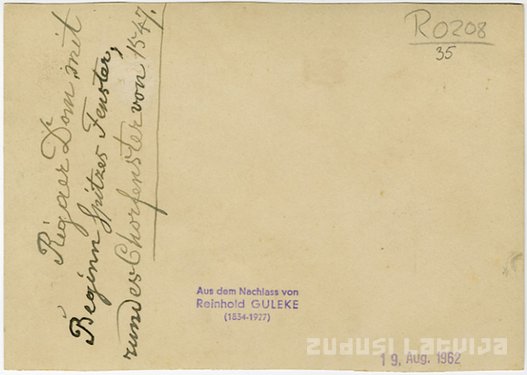 R0208
35
Rigaer Dom, mit
Beginn Spitzes Fenster,
rundes Chorfenster von 1547.
Aus dem Nachlass von
Reinhold GULEKE
(1834-1927)
ZUDUSI LATVIJA
19. Aug. 1962